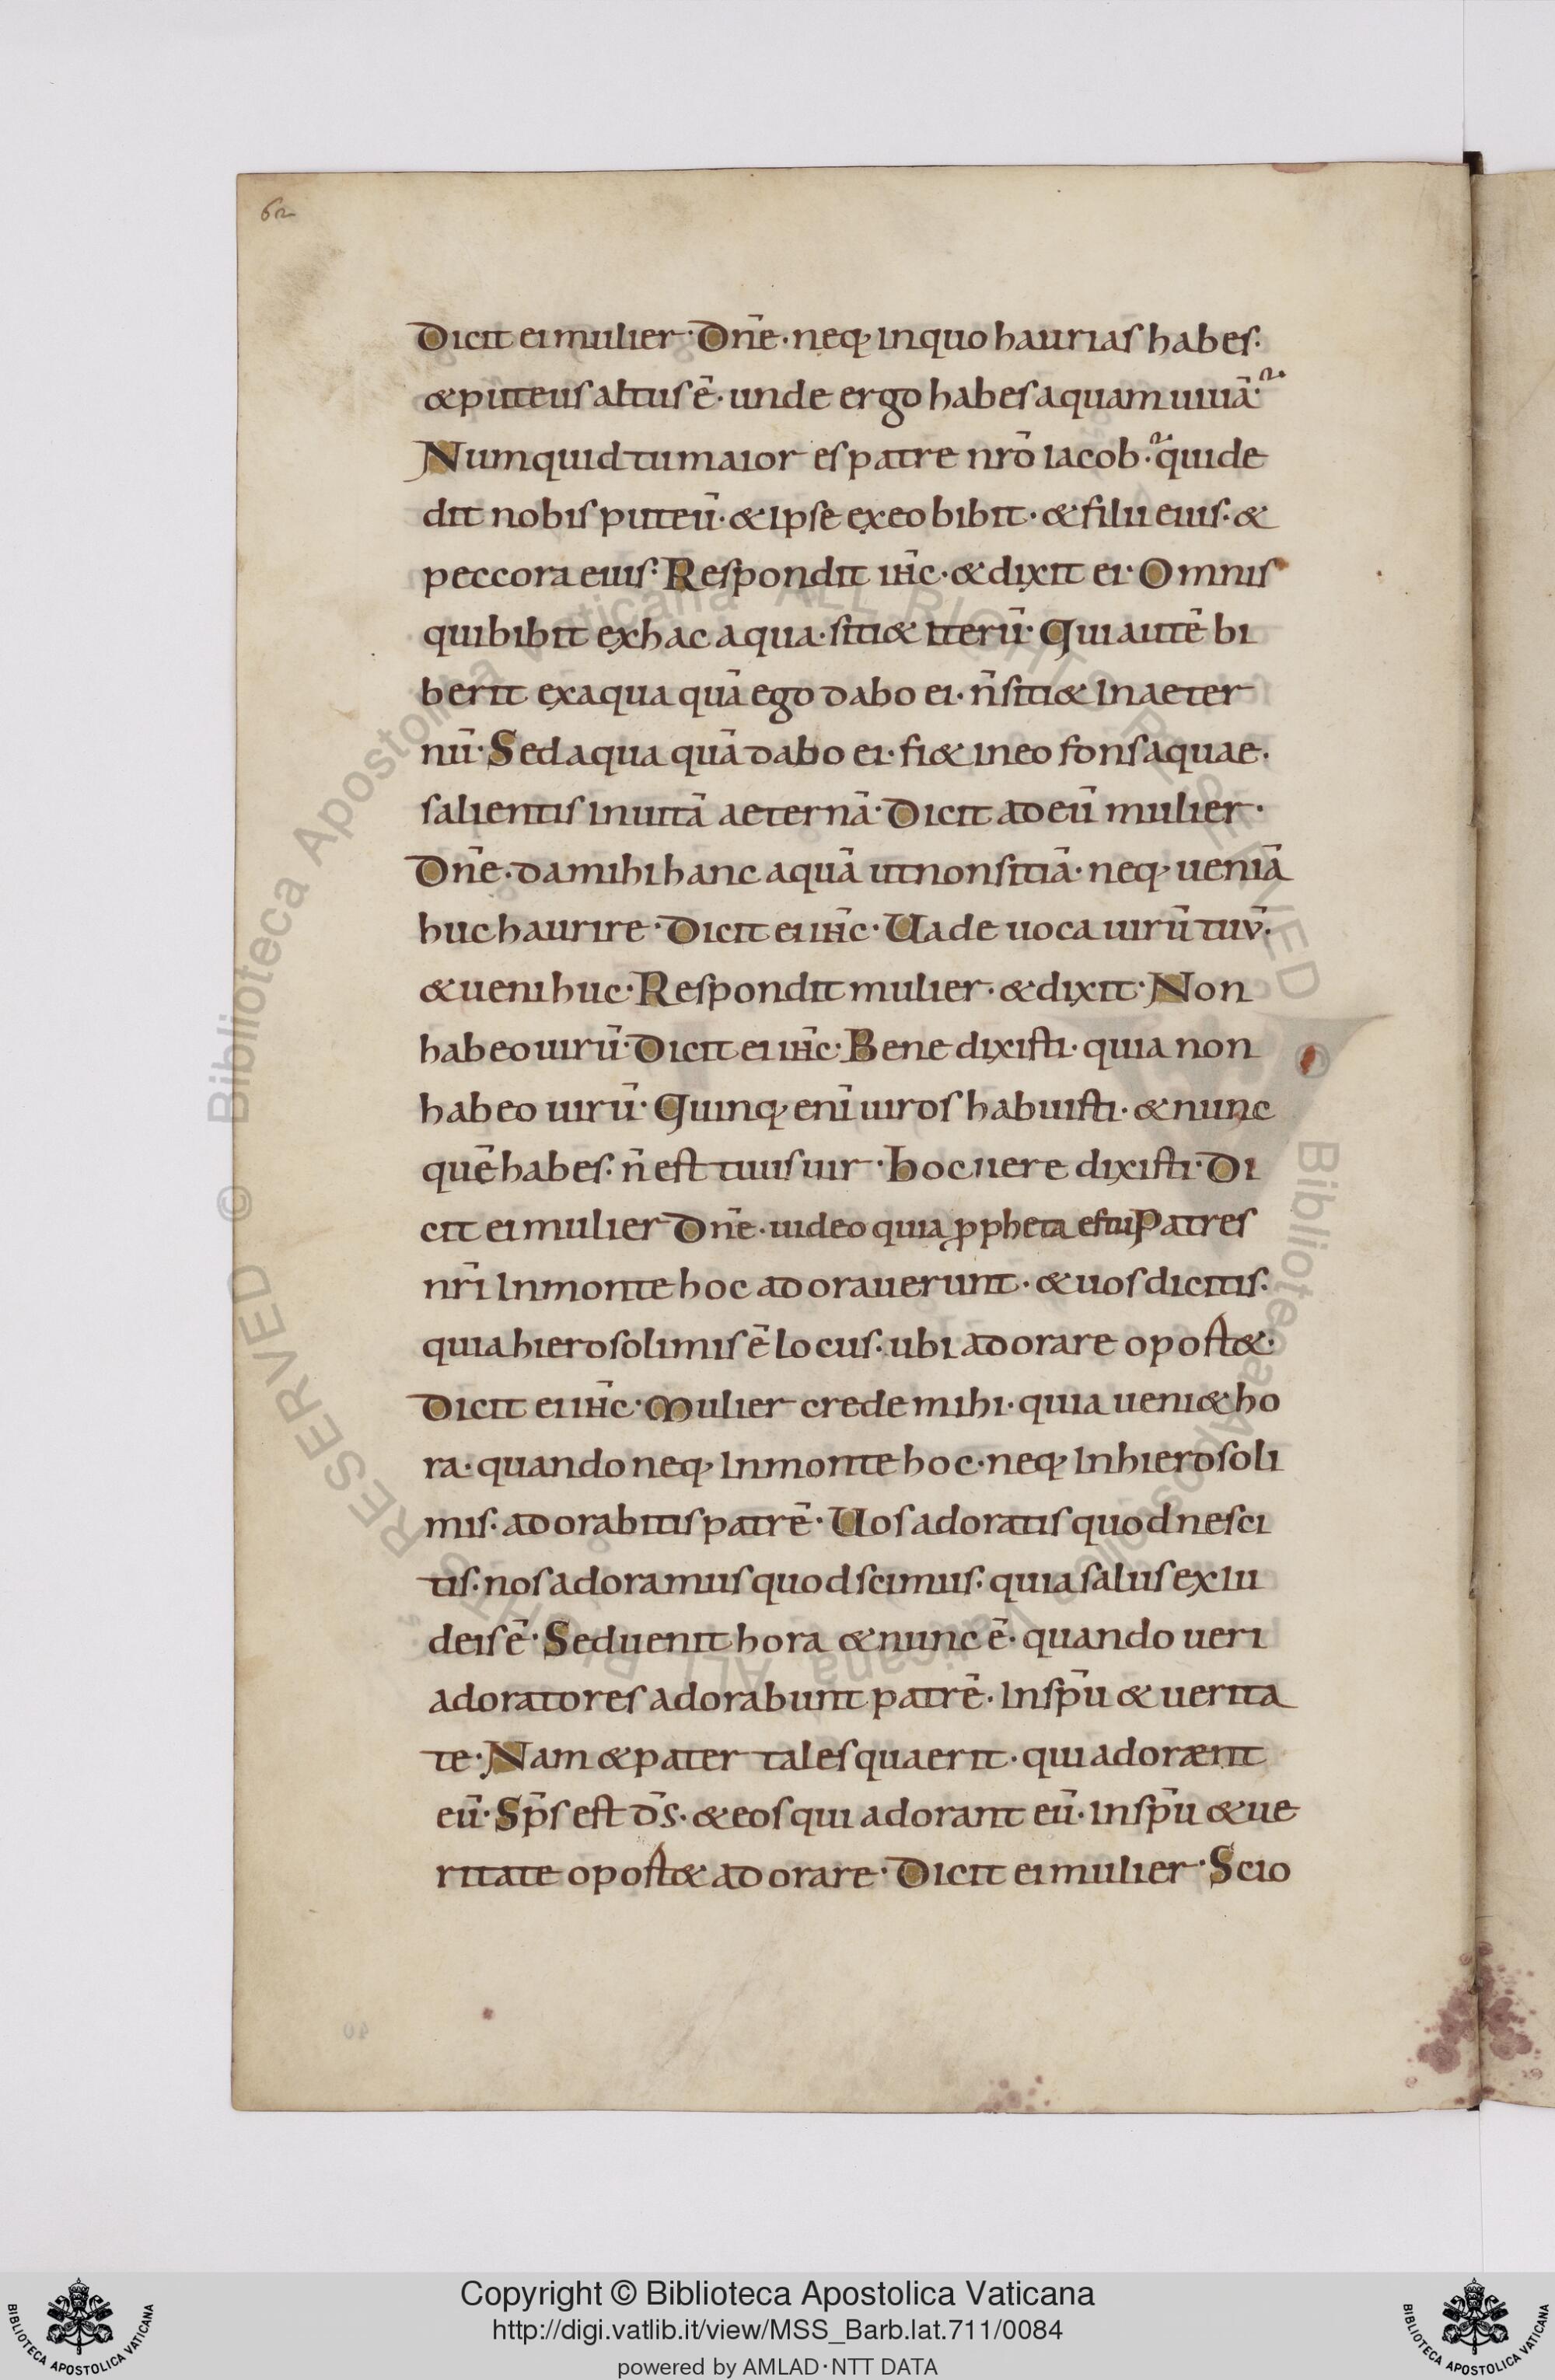 62
Dicit ei mulier· Dn̄e· neq; in quo haurias habes·
& puteus altus ē· unde ergo habes aquam uiuā·
Numquid tu maior es patre nr̄o iacob· qui de
dit nobis puteū· & ipse ex eo bibit· & filii eius· &
peccora eius· Respondit ih̄c· & dixit ei· Omnis
qui bibit ex hac aqua· siti& iterū· Qui autē bi
berit ex aqua quā ego dabo ei· n̄ siti& in aeter
nū· Sed aqua quā dabo ei· fi& in eo fons aquae·
salientis in uitā aeternā· Dicit ad eū mulier·
Dn̄e· da mihi hanc aquā ut non sitiā· neq; ueniā
huc haurire· Dicit ei ih̄c· Uade uoca uirū tuv̄·
& ueni huc· Respondit mulier· & dixit· Non
habeo uirū· Dicit ei ih̄c· Bene dixisti· quia non
habeo uirū· Quinq; enī uiros habuisti· & nunc
quē habes· n̄ est tuus uir· hoc uere dixisti· Di
cit ei mulier Dn̄e· uideo quia ꝓpheta es tu Patres
nr̄i in monte hoc adorauerunt· & uos dicitis·
quia hierosolimis ē locus· ubi adorare oport&·
Dicit ei ih̄c· Mulier crede mihi· quia ueni& ho
ra· quando neq; in monte hoc· neq; in hierosoli
mis· adorabitis patrē· Uos adoratis quod nesci
tis· nos adoramus quod scimus· quia salus ex iu
deis ē· Sed uenit hora & nunc ē· quando ueri
adoratores adorabunt patrē· in sp̄u & uerita
te· Nam & pater tales quaerit· qui adorænt
eū· Sp̄s est d̄s· & eos qui adorant eū· in sp̄u & ue
ritate oport& adorare· Dicit ei mulier· Scio
40
© Biblioteca Apostolica Vaticana ALL RIGHTS RESERVED
© Biblioteca Apostolica Vaticana ALL RIGHTS RESERVED
BIBLIOTECA APOSTOLICA VATICANA
Copyright © Biblioteca Apostolica Vaticana
http://digi.vatlib.it/view/MSS_Barb.lat.711/0084
powered by AMLAD·NTT DATA
BIBLIOTECA APOSTOLICA VATICANA